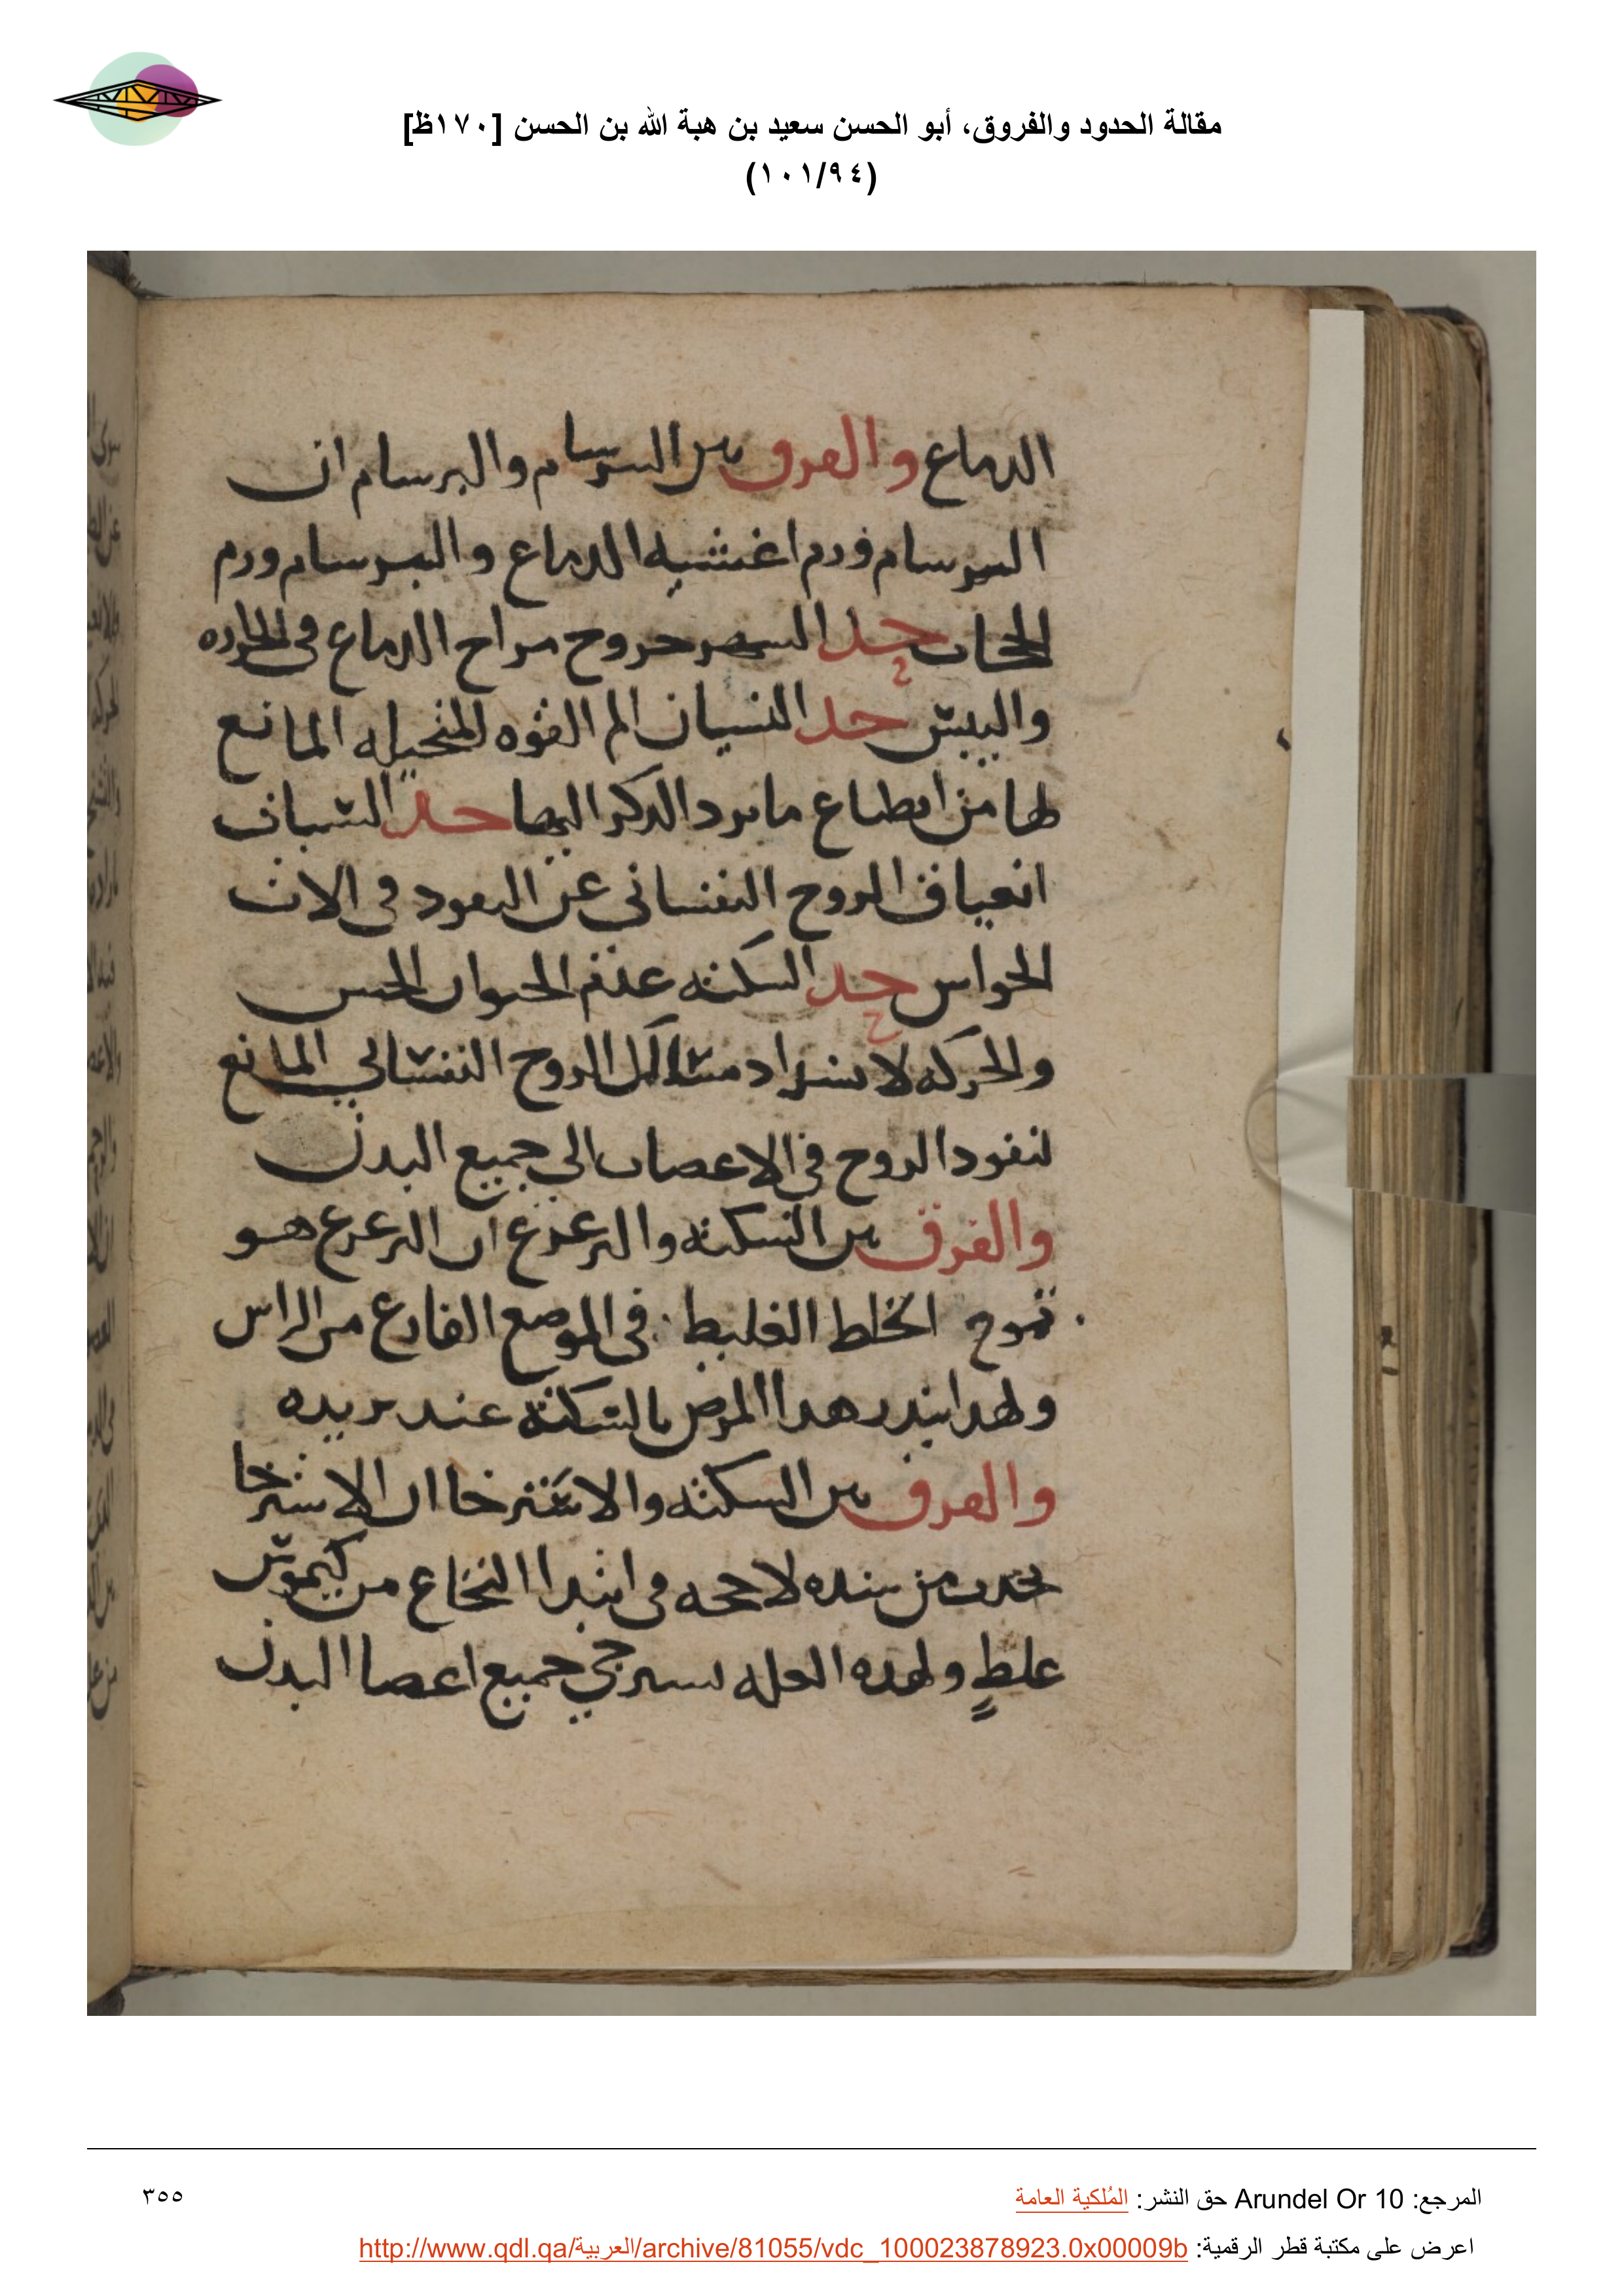 مقالة الحدود والفروق، أبو الحسن سعيد بن هبة الله بن الحسن [١٧٠ظ]
(١٠١/٩٤)
الدماغ والفرق بين السرسام والبرسام ان
السرسام ورم اغشيه الدماغ والبرسام ورم
الحجاب حد السهر خروج مزاج الدماغ في الحراره
واليبس حد النسيان الم القوه المتخيله المانع
لها من انطباع ما يرد الذكر اليها حد السبات
انعياق الروح النفساني عن النفود في الات
الحواس حد السكته عدم الحيوان الحس
والحركه لانسداد مسالك الروح النفساني المانع
لنفود الروح في الاعصاب الي جميع البدن
والفرق بين السكته والترعزع ان الترعزع هو
تموج الخلط الغليظ في الموضع الفارغ من الراس
ولهدا ينذر هدا المرض بالسكته عند تزيده
والفرق بين السكته والاسترخا ان الاسترخا
يحدث من سده لاحجه في ابتدا النخاع من كيموس
غلظ ولهده العله يسترخي جميع اعصا البدن
المرجع: Arundel Or 10 حق النشر: المُلكية العامة
٣٥٥
اعرض على مكتبة قطر الرقمية: http://www.qdl.qa/العربية/archive/81055/vdc_100023878923.0x00009b